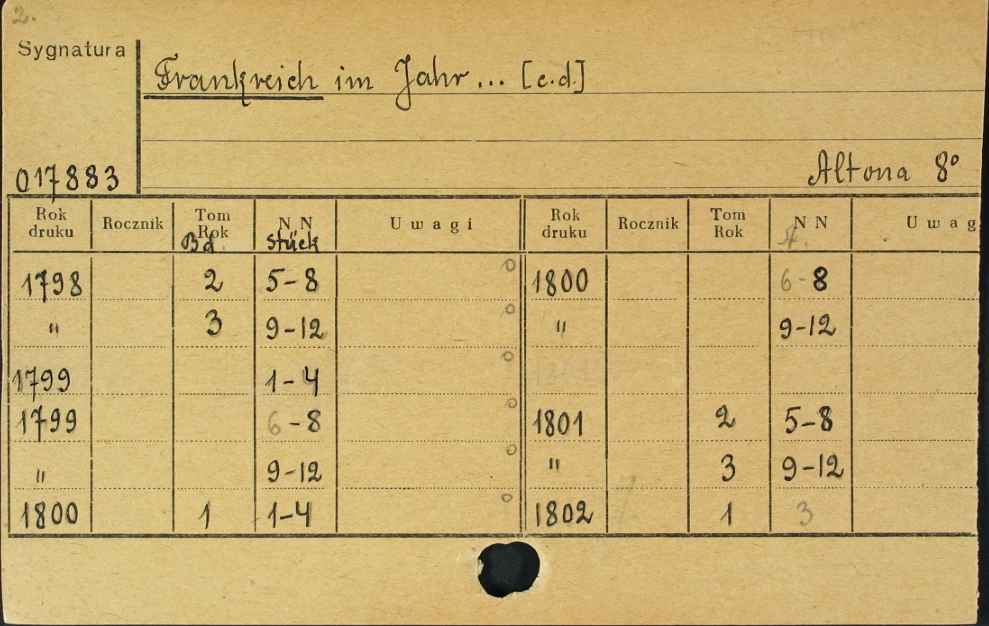 2.
Sygnatura
Frankreich im Jahr... [c.d.]
017883
Altona 8º
Rok druku Rocznik Tom Rok N N Uwagi Rok druku Rocznik Tom Rok N N Uwag
Bd. Stück St.
1798 2 5-8 1800 6-8
" 3 9-12 " 9-12
1799 1-4
1799 6-8 1801 2 5-8
" 9-12 " 3 9-12
1800 1 1-4 1802 1 3